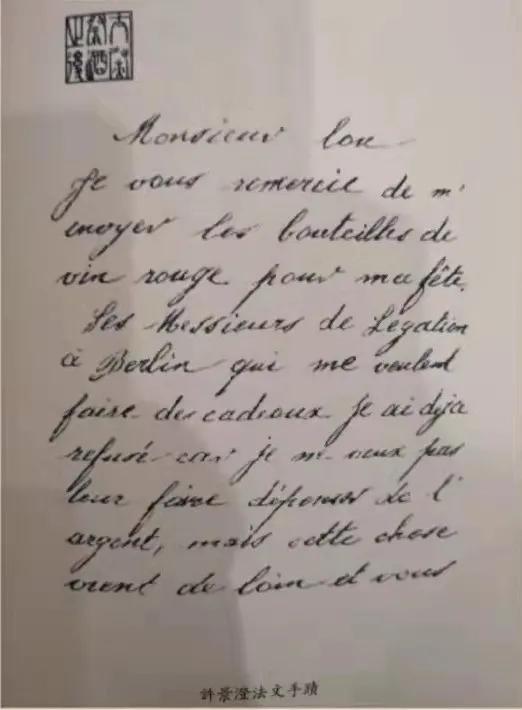 Monsieur lou
Je vous remercie de m'
envoyer les bouteilles de
vin rouge pour ma fête.
Les Messieurs de Legation
à Berlin qui me veulent
faire des cadeaux Je ai deja
refusé car je ne veux pas
leur faire dépenser de l'
argent, mais cette chose
vient de loin et vous
許景澄法文手蹟